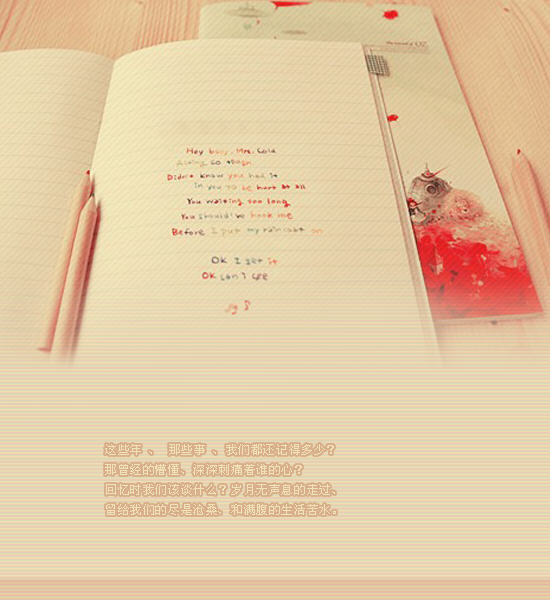 Hey baby, Mrs. Cold
Acting so tough
Didn't know you had it
in you to be hurt at all
You waiting too long
You should've hook me
Before I put my raincoat on
OK I get it
OK can't see
这些年 、 那些事 、我们都还记得多少？
那曾经的懵懂、深深刺痛着谁的心？
回忆时我们该谈什么？岁月无声息的走过、
留给我们的尽是沧桑、和满腹的生活苦水。